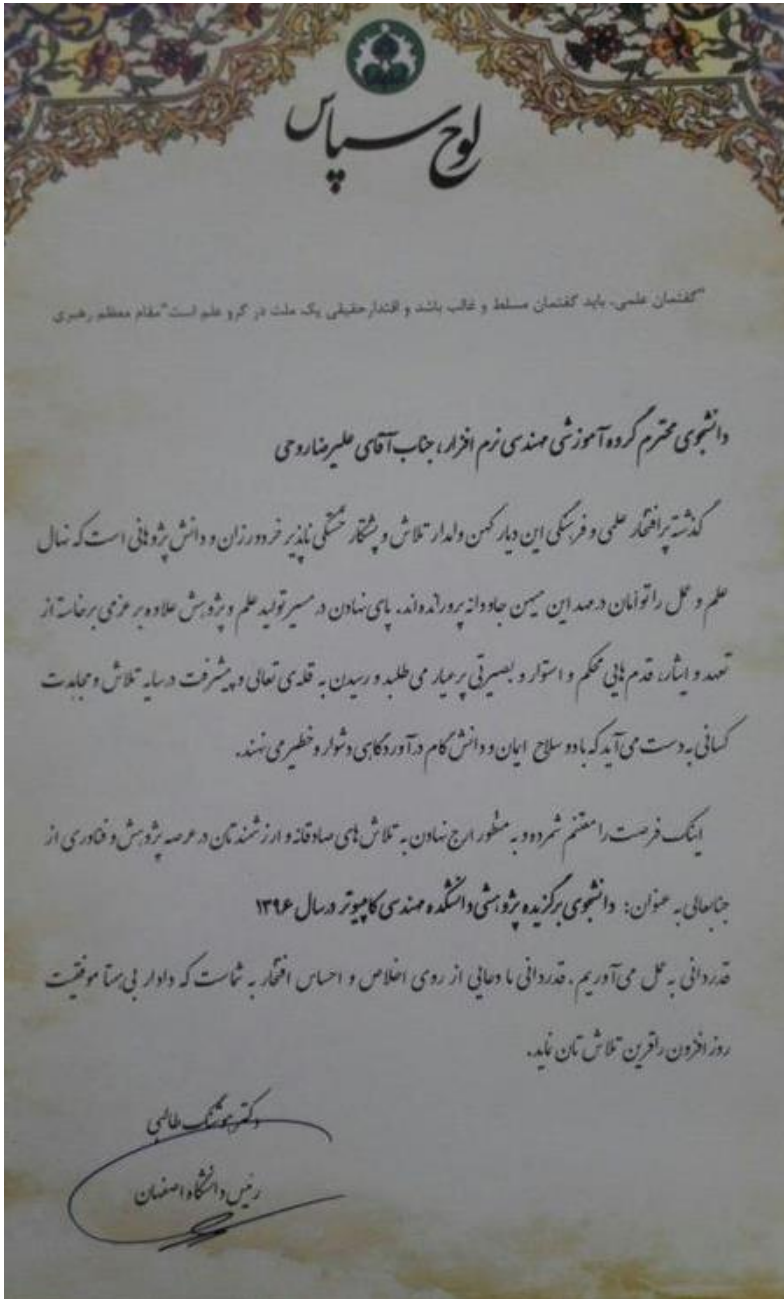 لوح سپاس
"گفتمان علمی، باید گفتمان مسلط و غالب باشد و اقتدارحقیقی یک ملت در گرو علم است"مقام معظم رهبری
دانشجوی محترم گروه آموزشی مهندسی نرم افزار، جناب آقای علیرضا روحی
گذشته پرافتخار علمی و فرهنگی این دیار کهن وامدار تلاش و پشتکار خستگی ناپذیر خردورزان و دانش پژوهانی است که نهال
علم و عمل را توامان در مهد این میهن جاودانه پرورانده‌اند. پای نهادن در مسیر تولید علم و پژوهش علاوه بر عزمی برخاسته از
تعهد و ایثار، قدم هایی محکم و استوار و بصیرتی پرعیار می طلبد و رسیدن به قله‌ی تعالی و پیشرفت در سایه تلاش و مجاهدت
کسانی به دست می‌آید که با دو سلاح ایمان و دانش گام در آوردگاهی دشوار و خطیر می نهند.
اینک فرصت را مغتنم شمرده و به منظور ارج نهادن به تلاش های صادقانه و ارزشمندتان در عرصه پژوهش و فناوری از
جنابعالی به عنوان: دانشجوی برگزیده پژوهشی دانشکده مهندسی کامپیوتر در سال ۱۳۹۶
قدردانی به عمل می‌آوریم. قدردانی ما دعایی از روی اخلاص و احساس افتخار به شماست که دادار بی همتا موفقیت
روز افزون را قرین تلاش تان نماید.
دکتر هوشنگ طالبی
رئیس دانشگاه اصفهان